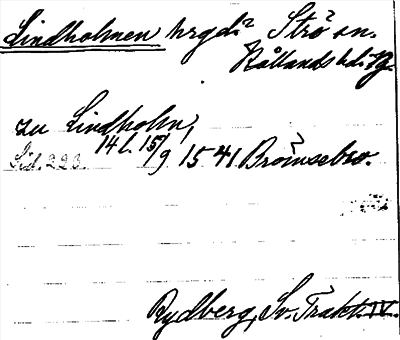 Lindholmen hrgd. i Strö sn.
Kållands hd. Vg.
zu Lindholm,
Sid. 223. 14 l. 15/9 1541 Brömsebro.
Rydberg, Sv. Trakt. IV.